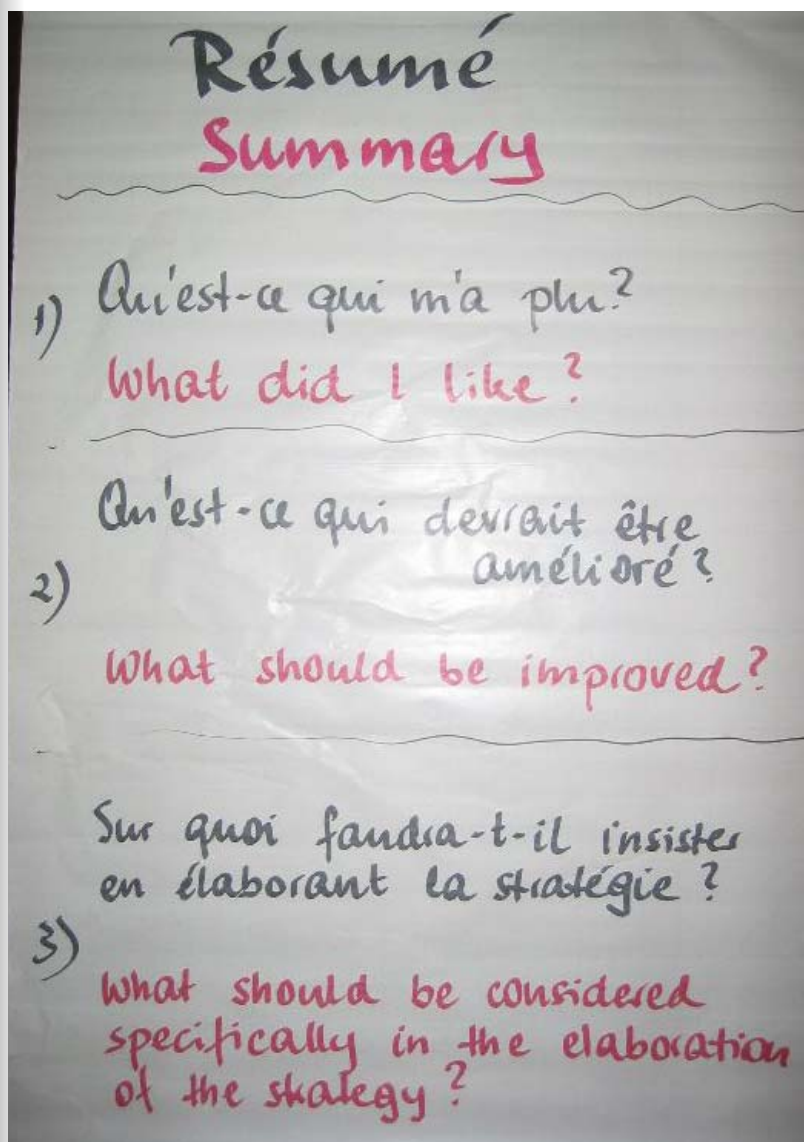 Résumé
Summary
1) Qu'est-ce qui m'a plu?
What did I like?
Qu'est-ce qui devrait être
amélioré?
2)
What should be improved?
Sur quoi faudra-t-il insister
en élaborant la stratégie?
3)
What should be considered
specifically in the elaboration
of the strategy?